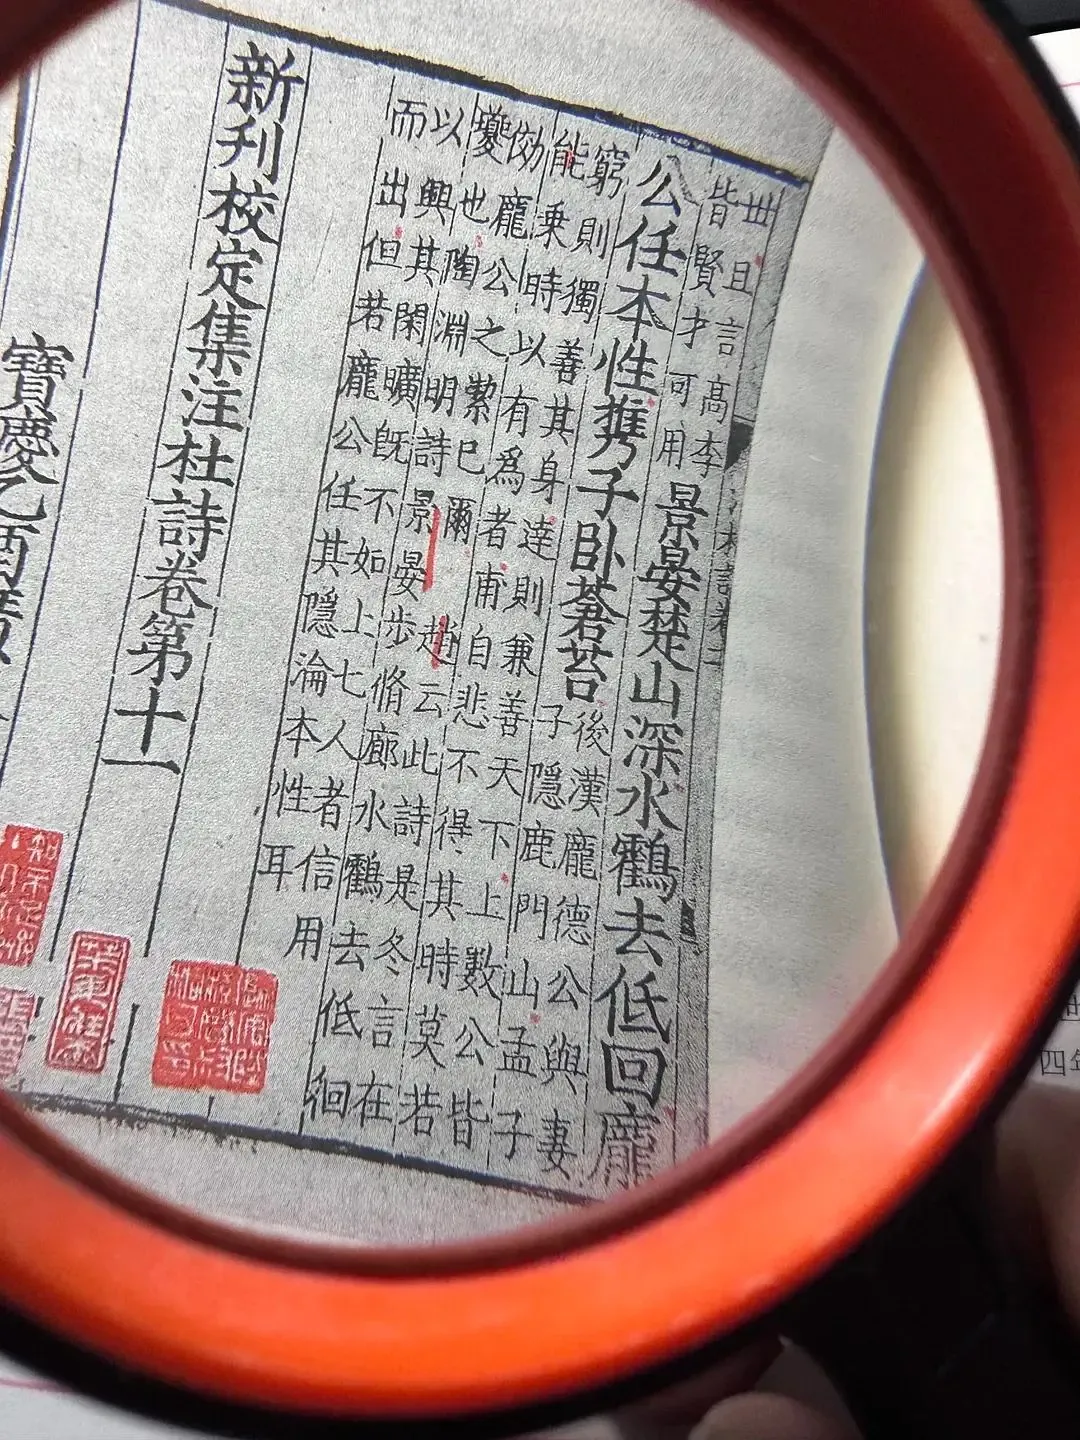 丗且言高李
皆賢才可用
景晏楚山深水鶴去低回龐
公任本性携子卧蒼苔
後漢龐德公與妻
子隱鹿門山孟子
窮則獨善其身達則兼善天下上數公皆
能乗時以有爲者甫自悲不得其時莫若
効龐公之絜已爾 趙云此詩是冬言在
夔也陶淵明詩景晏步脩廊水鶴去低徊
以興其閑曠旣不如上七人者信用
而出但若龐公任其隱淪本性耳
新刋校定集注杜詩卷第十一
寶慶乙酉
四年